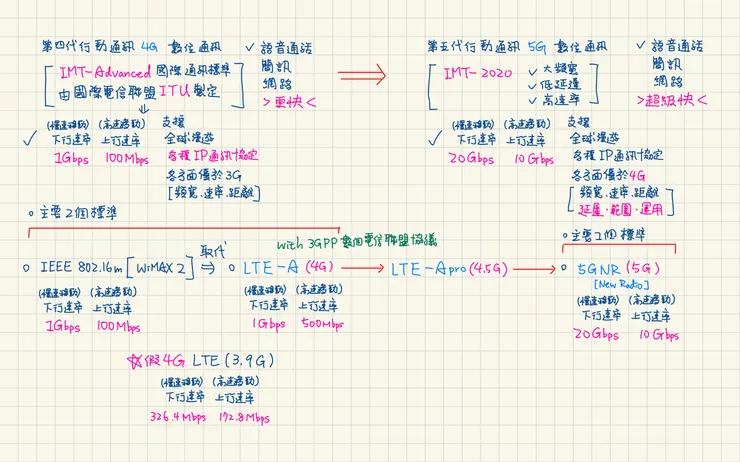 第四代行動通訊 4G 數位通訊
IMT-Advanced 國際通訊標準
由國際電信聯盟 ITU 製定
✓ 語音通話
簡訊
網路
>更快<
第五代行動通訊 5G 數位通訊
IMT-2020
✓ 大頻寬
✓ 低延遲
✓ 高速率
✓ 語音通話
簡訊
網路
>超級快<
✓ (慢速移動) (高速移動)
下行速率 上行速率
1Gbps 100Mbps
支援
全球漫遊
各種IP通訊協定
各方面優於3G
[頻寬、速率、距離]
✓ (慢速移動) (高速移動)
下行速率 上行速率
20Gbps 10Gbps
支援
全球漫遊
各種IP通訊協定
各方面優於4G
頻寬、速率、距離
延遲·範圍·運用
主要2個標準
主要1個標準
with 3GPP 數個電信聯盟協議
IEEE 802.16m [WiMAX 2]
取代
⇒
LTE-A (4G)
LTE-A pro (4.5G)
5G NR (5G)
[New Radio]
(慢速移動) (高速移動)
下行速率 上行速率
1Gbps 100Mbps
(慢速移動) (高速移動)
下行速率 上行速率
1Gbps 500Mbps
(慢速移動) (高速移動)
下行速率 上行速率
20Gbps 10Gbps
☆假4G LTE (3.9G)
(慢速移動) (高速移動)
下行速率 上行速率
326.4Mbps 172.8Mbps